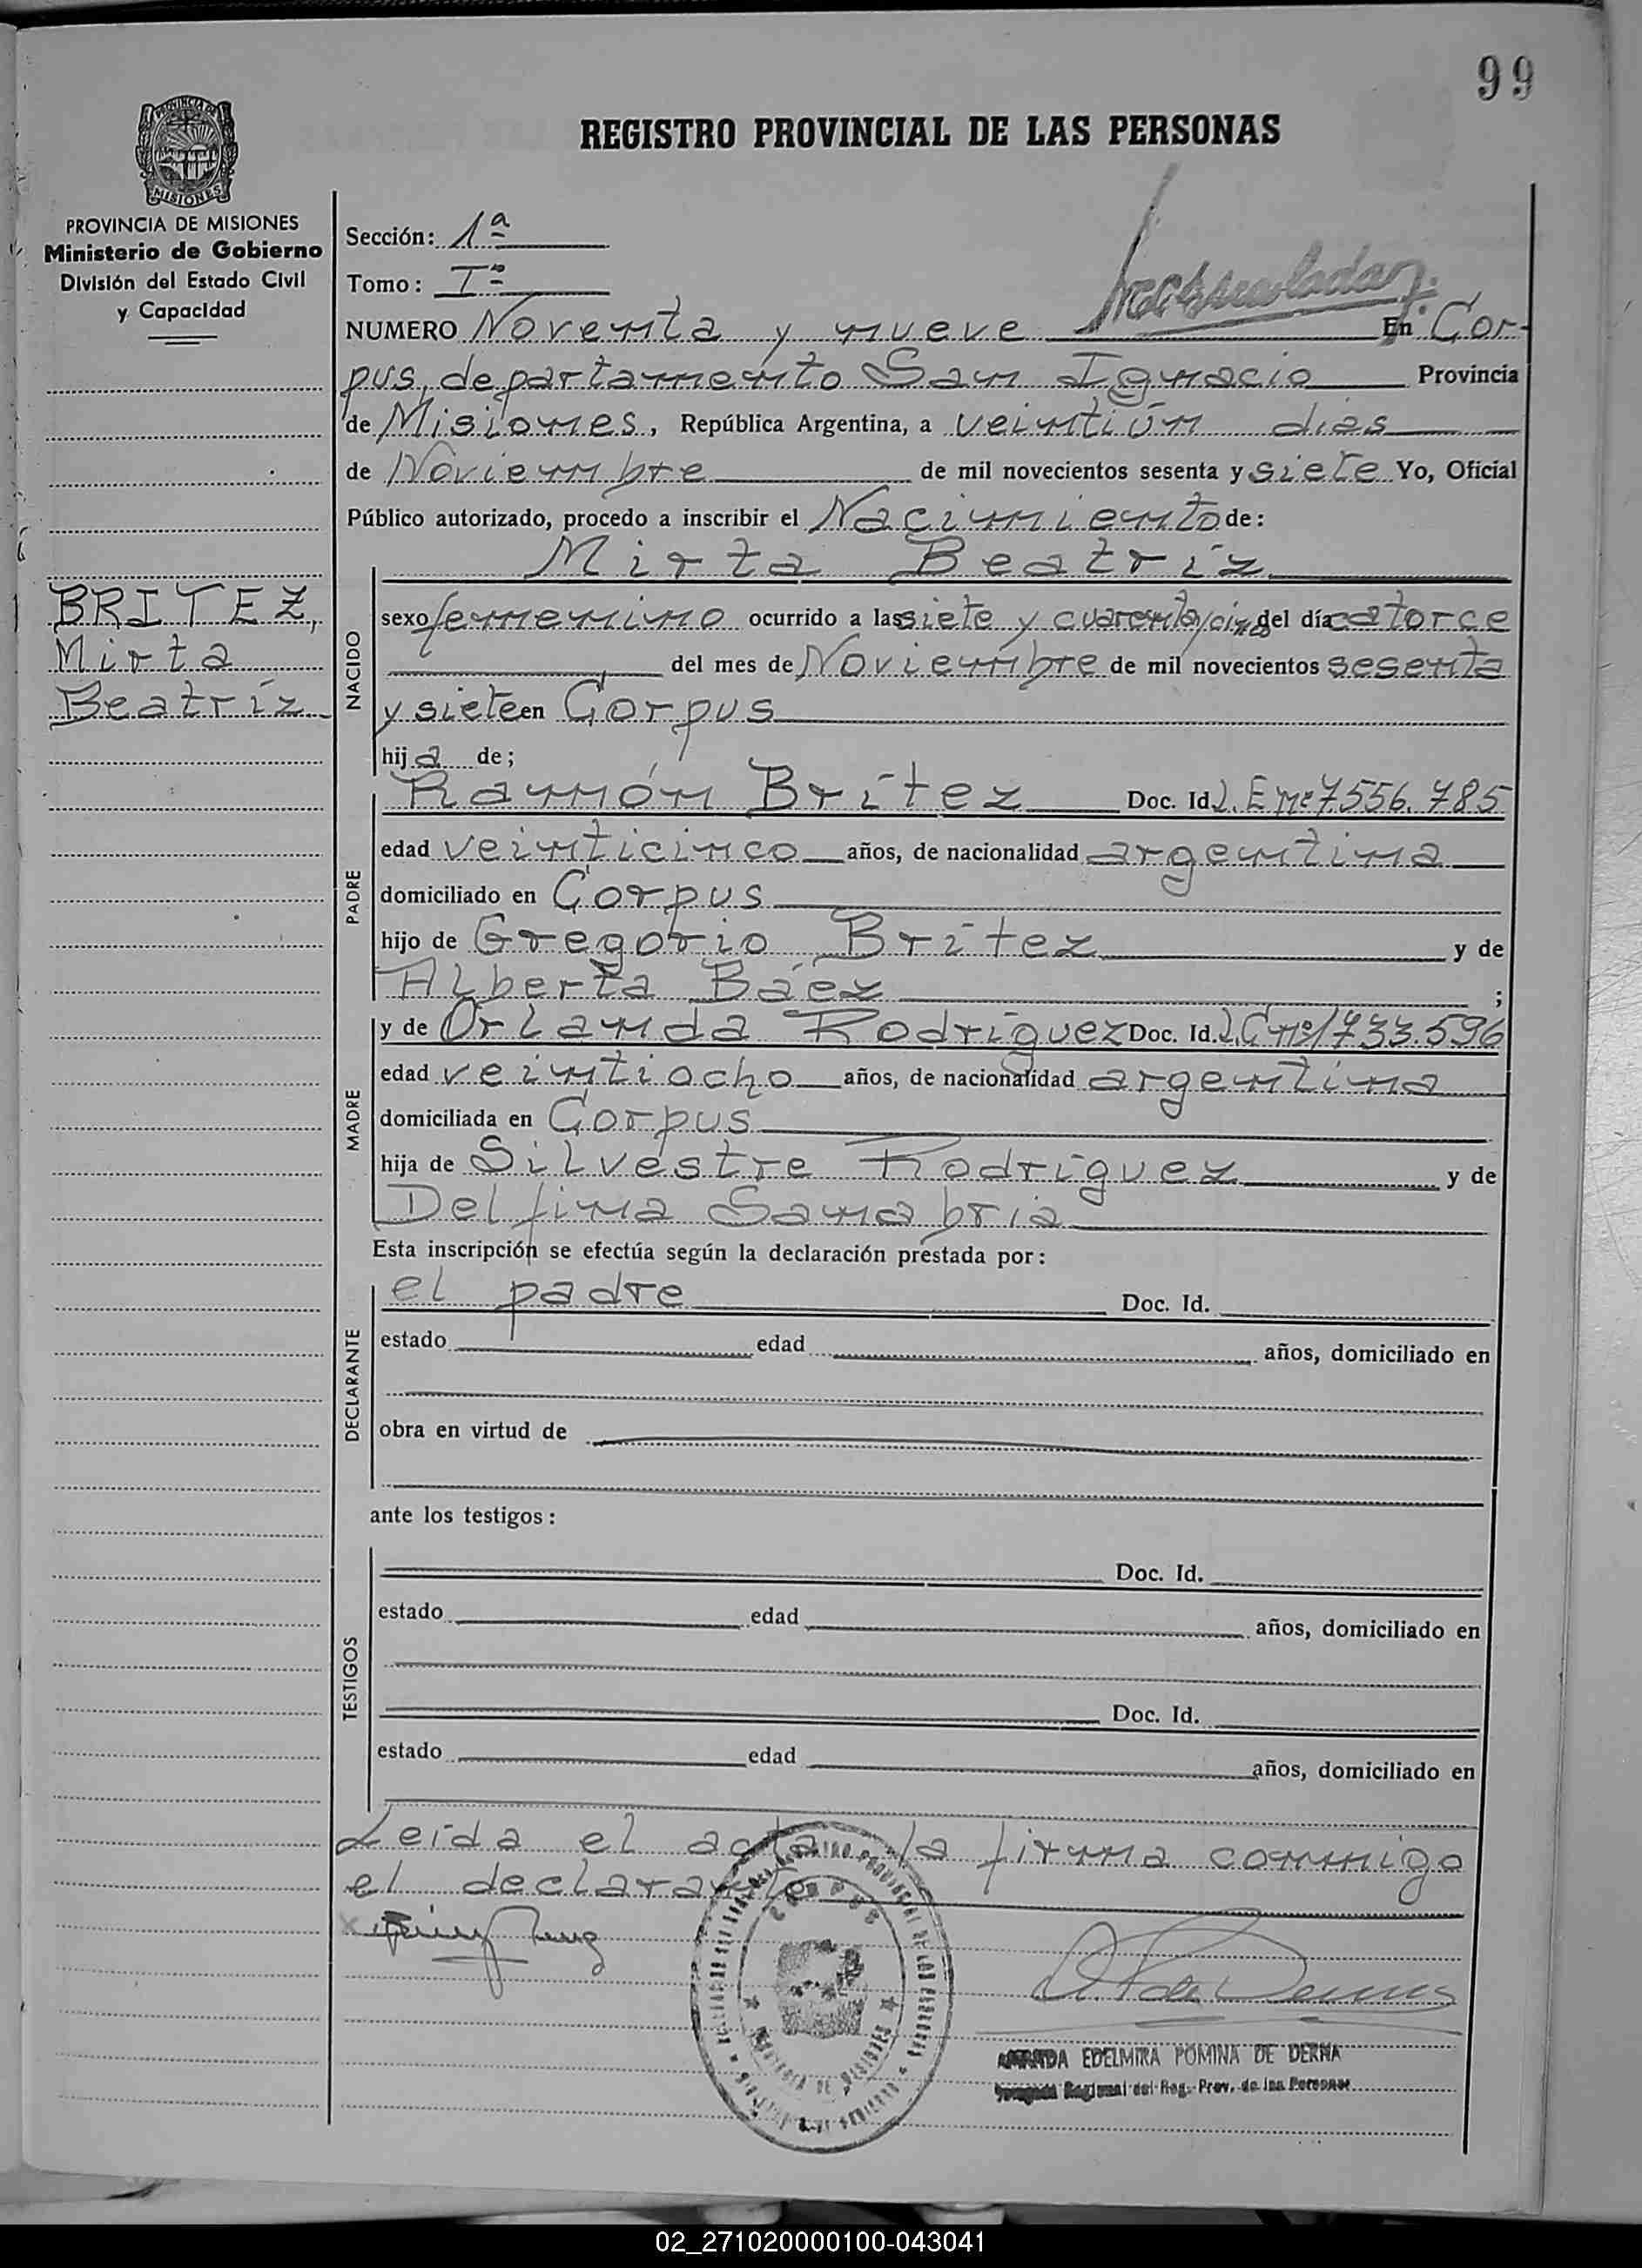 99
REGISTRO PROVINCIAL DE LAS PERSONAS
PROVINCIA DE MISIONES
Ministerio de Gobierno
División del Estado Civil
y Capacidad
Sección: 1ª
Tomo: Iº
NUMERO Noventa y nueve En Cor-
pus, departamento San Ignacio Provincia
de Misiones, República Argentina, a veintiún días
de Noviembre de mil novecientos sesenta y siete Yo, Oficial
Público autorizado, procedo a inscribir el Nacimiento de:
Mirta Beatríz
BRITEZ,
Mirta
Beatríz
NACIDO
sexo femenino ocurrido a las siete y cuarenta y cinco del día catorce
del mes de Noviembre de mil novecientos sesenta
y siete en Corpus
hija de;
PADRE
Ramón Brítez Doc. Id. L.E nº 7.556.785
edad veinticinco años, de nacionalidad argentina
domiciliado en Corpus
hijo de Gregorio Brítez y de
Alberta Báez ;
MADRE
y de Orlanda Rodríguez Doc. Id. L.C nº 1733.596
edad veintiocho años, de nacionalidad argentina
domiciliada en Corpus
hija de Silvestre Rodríguez y de
Delfina Sanabria
Esta inscripción se efectúa según la declaración prestada por:
DECLARANTE
el padre Doc. Id.
estado edad años, domiciliado en
obra en virtud de
ante los testigos:
TESTIGOS
Doc. Id.
estado edad años, domiciliado en
Doc. Id.
estado edad años, domiciliado en
Leída el acta la firma conmigo
el declarante
EDELMIRA POMINA DE DERNA
Regional del Reg. Prov. de las Personas
02_271020000100-043041